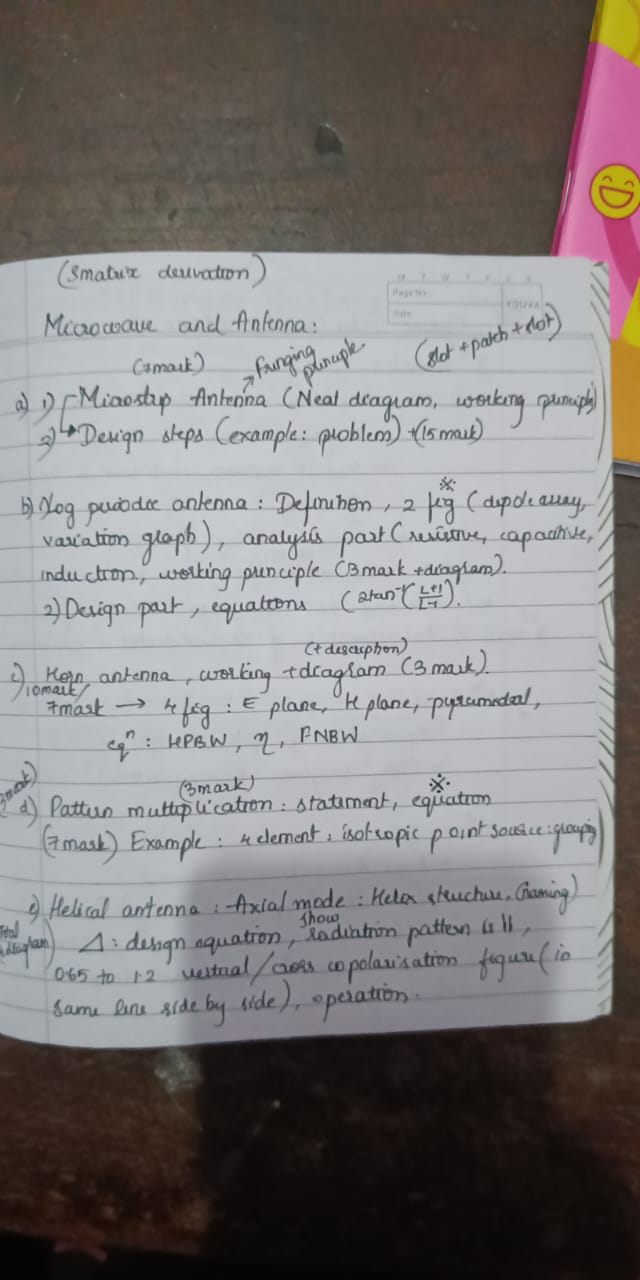 (Smatrix derivation)
M T W T F S S
Page No.:
Date:
YOUVA
Microwave and Antenna:
(7mark) fringing principle (slot + patch + slot)
a) 1) Microstrip Antenna (Neat diagram, working principle)
2) Design steps (example: problem) + (15 mark)
b) Log periodic antenna: Definition, 2 fig (dipole array,
variation graph), analysis part (resistive, capacitive,
induction, working principle (3mark + diagram).
2) Design part, equations (2tan⁻¹(L+1/L-1).
(+ description)
c) Horn antenna, working + diagram (3 mark).
10mark/
7mark → 4 fig: E plane, H plane, pyramidal,
eqⁿ: HPBW, η, FNBW
(3mark)
(3mark)
d) Pattern multiplication: statement, equation
(7mark) Example: 4 element: isotropic point source: grouping
e) Helical antenna: Axial mode: Helix structure. (naming)
diagram) Δ: design equation, show radiation pattern is 11,
0.65 to 1.2 vertical/cross copolarisation figure (in
same line side by side), operation.